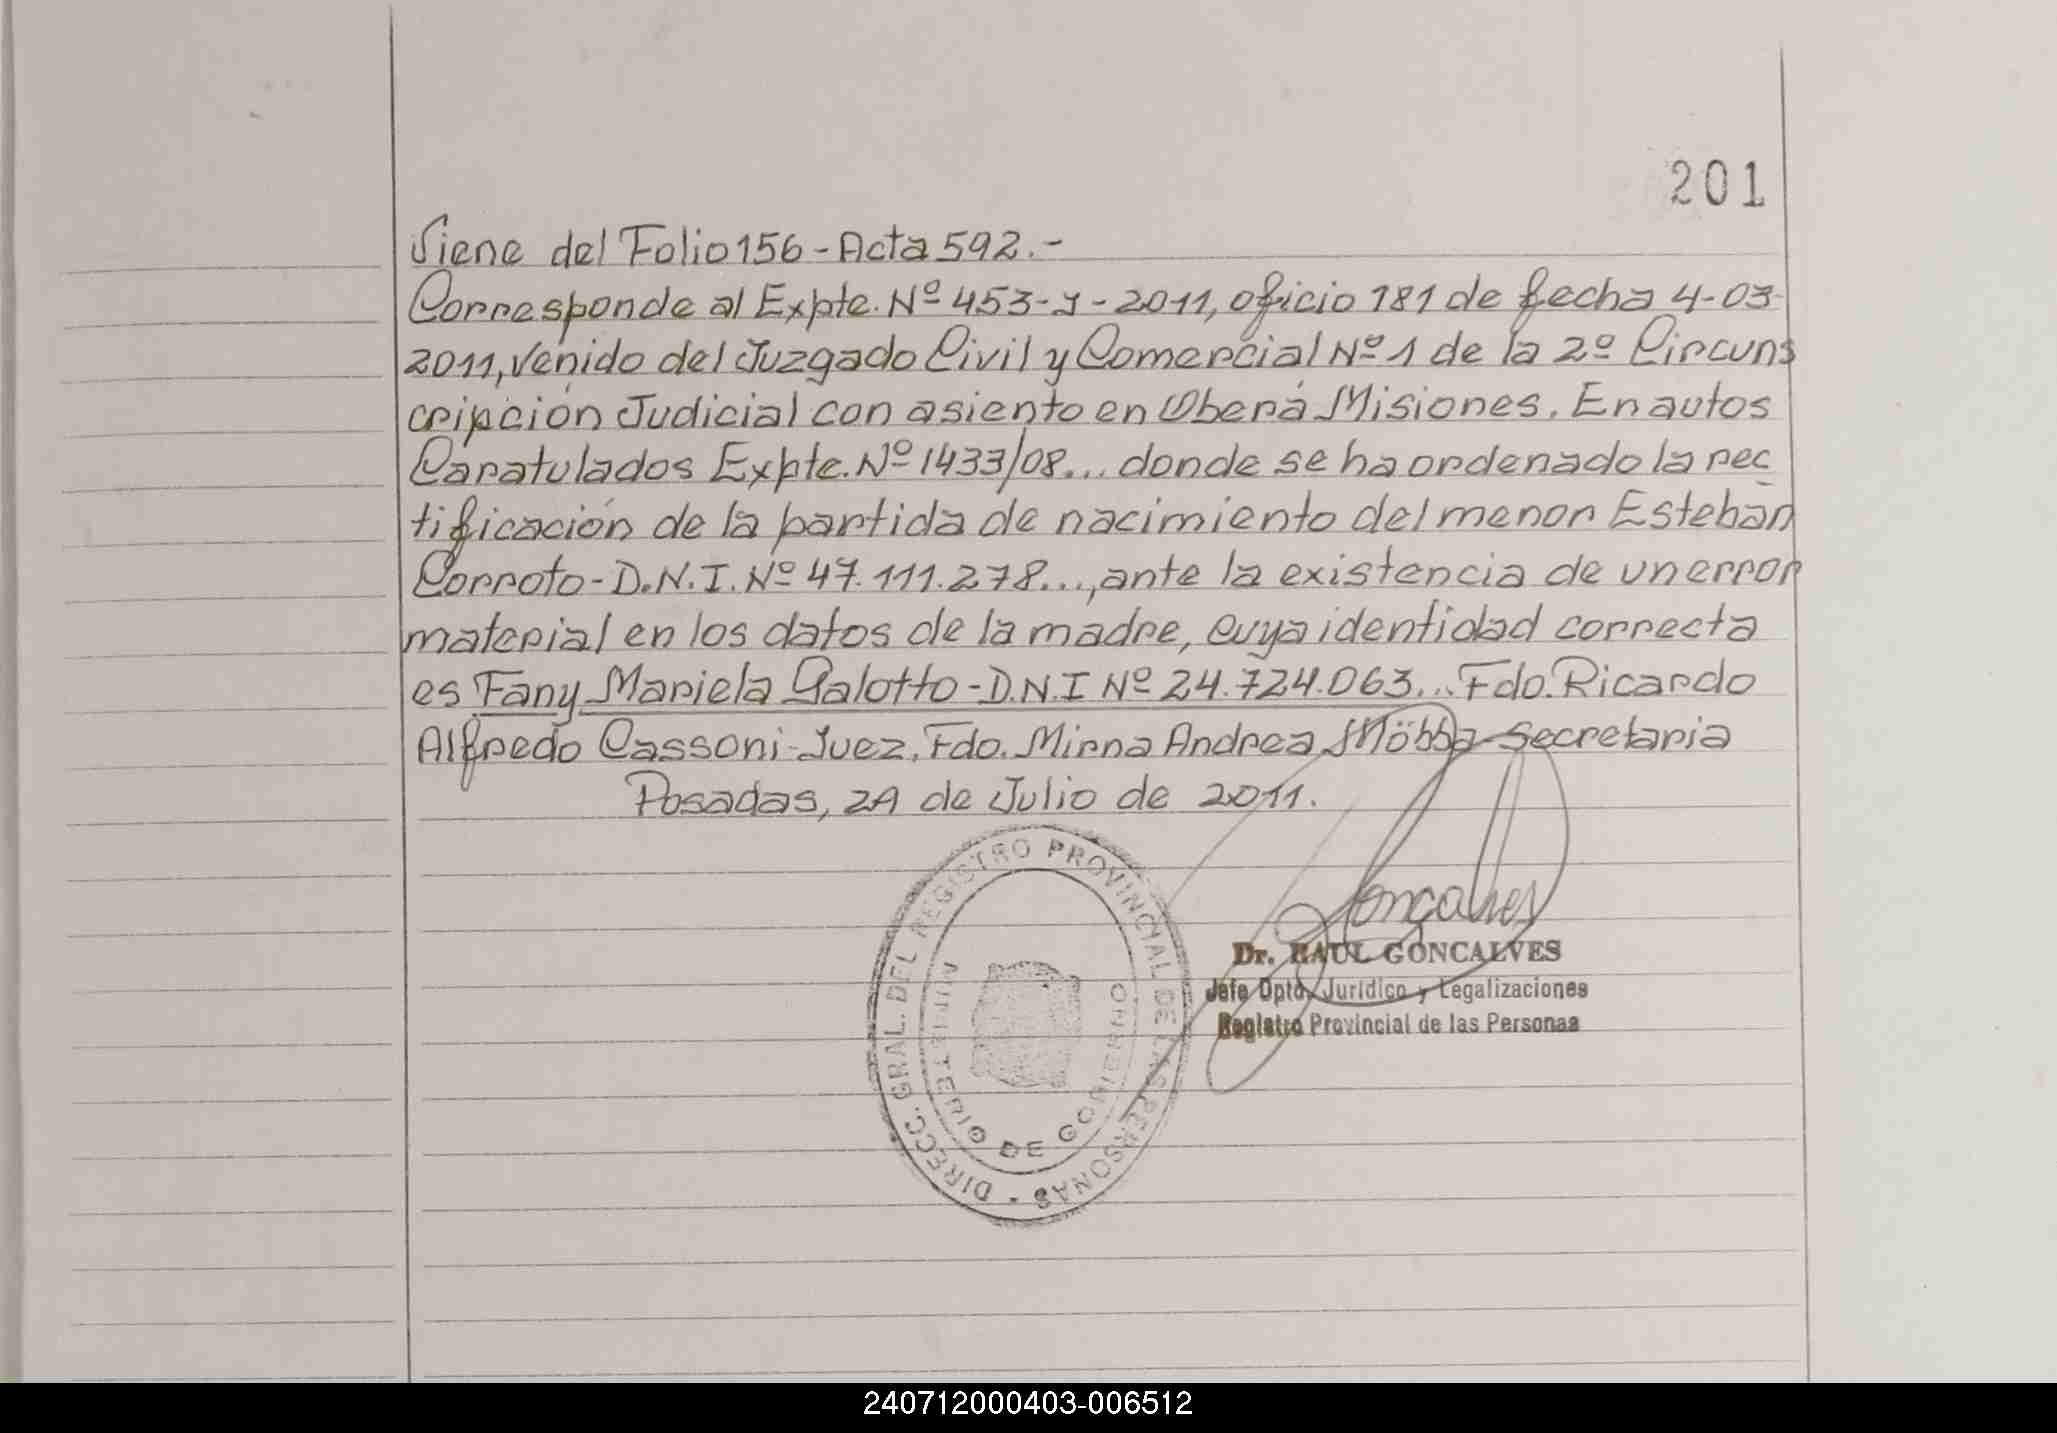 201
Viene del Folio 156 - Acta 592.-
Corresponde al Expte. Nº 453-J-2011, oficio 181 de fecha 4-03-
2011, Venido del Juzgado Civil y Comercial Nº 1 de la 2º Circuns
cripción Judicial con asiento en Oberá Misiones. En autos
Caratulados Expte. Nº 1433/08... donde se ha ordenado la rec
tificación de la partida de nacimiento del menor Esteban
Corroto - D.N.I. Nº 47.111.278..., ante la existencia de un error
material en los datos de la madre, cuya identidad correcta
es Fany Mariela Galotto - D.N.I Nº 24.724.063... Fdo. Ricardo
Alfredo Cassoni - Juez. Fdo. Mirna Andrea Möbba - Secretaria
Posadas, 21 de Julio de 2011.
Goncalves
Dr. RAUL GONCALVES
Jefe Dpto. Jurídico y Legalizaciones
Registro Provincial de las Personas
DIRECC. GRAL. DEL REGISTRO PROVINCIAL DE LAS PERSONAS -
MINISTERIO DE GOBIERNO
240712000403-006512